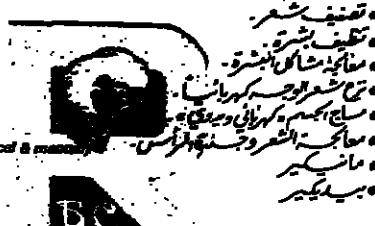 • تصفيف شعر.
• تنظيف بشرة.
• معالجة مشاكل البشرة.
• نزع شعر الوجه كهربائياً.
• مساج الجسم. كهربائي ويدوي.
• معالجة الشعر وجلدة الرأس.
• مانيكير
• بيديكير
cal & massage